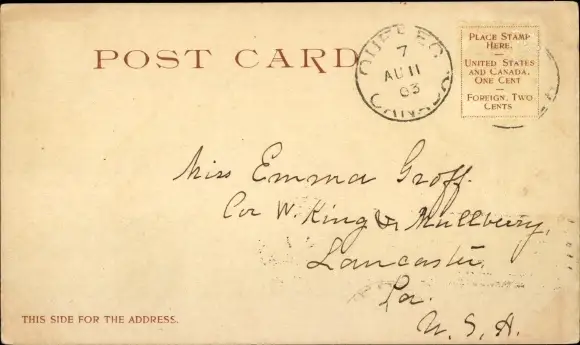 POST CARD
QUEBEC
7
AU 11
03
CANADA
PLACE STAMP
HERE.
UNITED STATES
AND CANADA,
ONE CENT
FOREIGN, TWO
CENTS
Miss Emma Groff.
Cor W. King & Mullbury,
Lancaster,
Pa.
U. S. A.
THIS SIDE FOR THE ADDRESS.